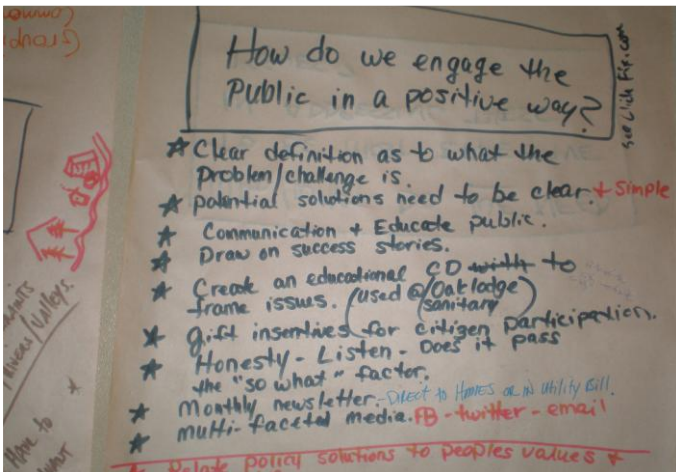 How do we engage the
Public in a positive way?
see Click Fix.com
☆ Clear definition as to what the
problem/challenge is.
☆ potential solutions need to be clear. + Simple
☆ Communication + Educate public.
☆ Draw on success stories.
☆ Create an educational CD with to
frame issues. (used @/Oak lodge
sanitary)
☆ gift insentives for citizen participation.
☆ Honesty - Listen - Does it pass
the "so what" factor.
☆ Monthly newsletter. - Direct to Homes or in utility Bill.
☆ multi-faceted media. FB - twitter - email
Relate policy solutions to peoples values +
Group
Rivers/Valleys.
Have to